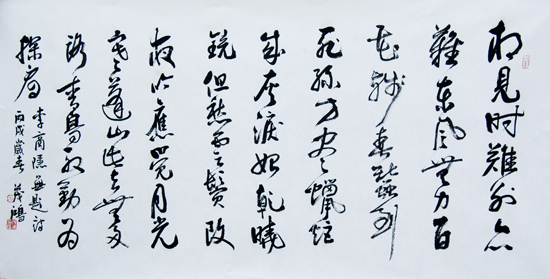 相見时難别亦
難東風無力百
花殘春蠶到
死絲方尽蠟炬
成灰淚始乾曉
鏡但愁雲鬢改
夜吟應覺月光
寒蓬山此去無多
路青鳥殷勤为
探看
李商隱無題詩
丙戌歲春 茂鴻